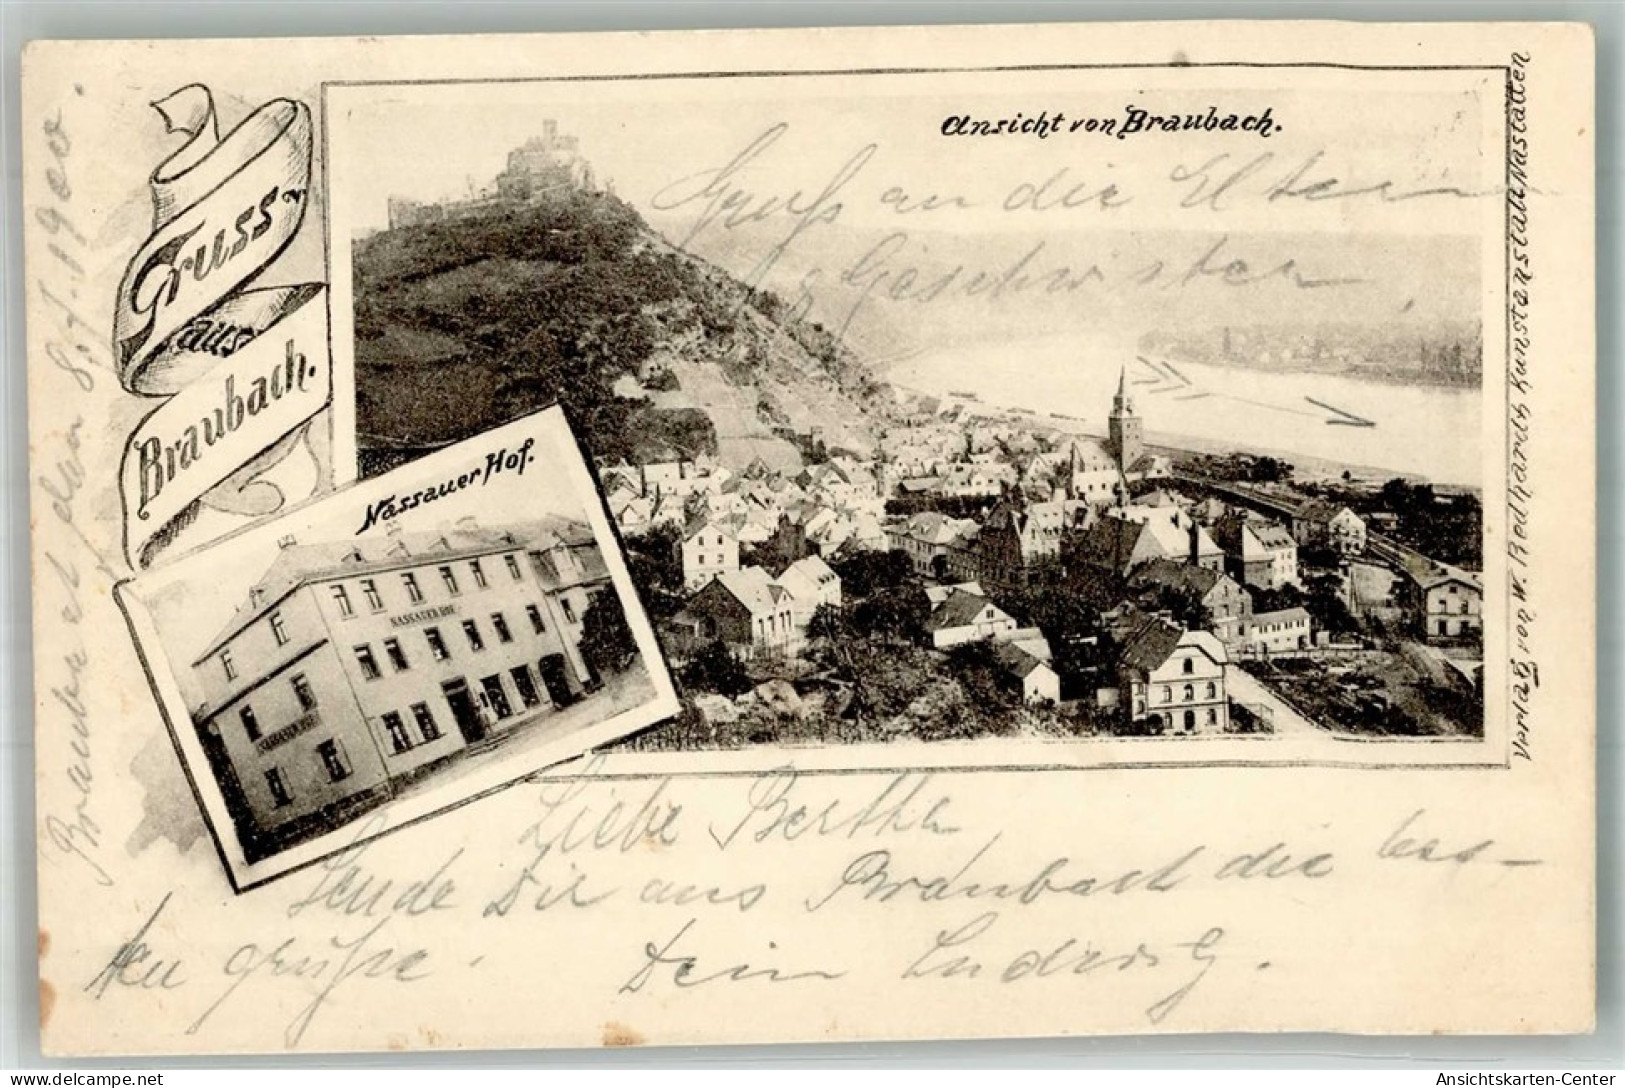 Gruss
aus
Braubach.
Ansicht von Braubach.
Nassauer Hof.
NASSAUER HOF
NASSAUER HOF
Verlag von W. Redhardt, Kunstanstalt Nastätten
Gruß an die Eltern
Geschwister
Liebe Bertha
Sende Dir aus Braubach die bes-
ten grüße.
Dein Ludwig.
Braubach den 8. 1900.
Ansichtskarten-Center
fc_delcampe_de